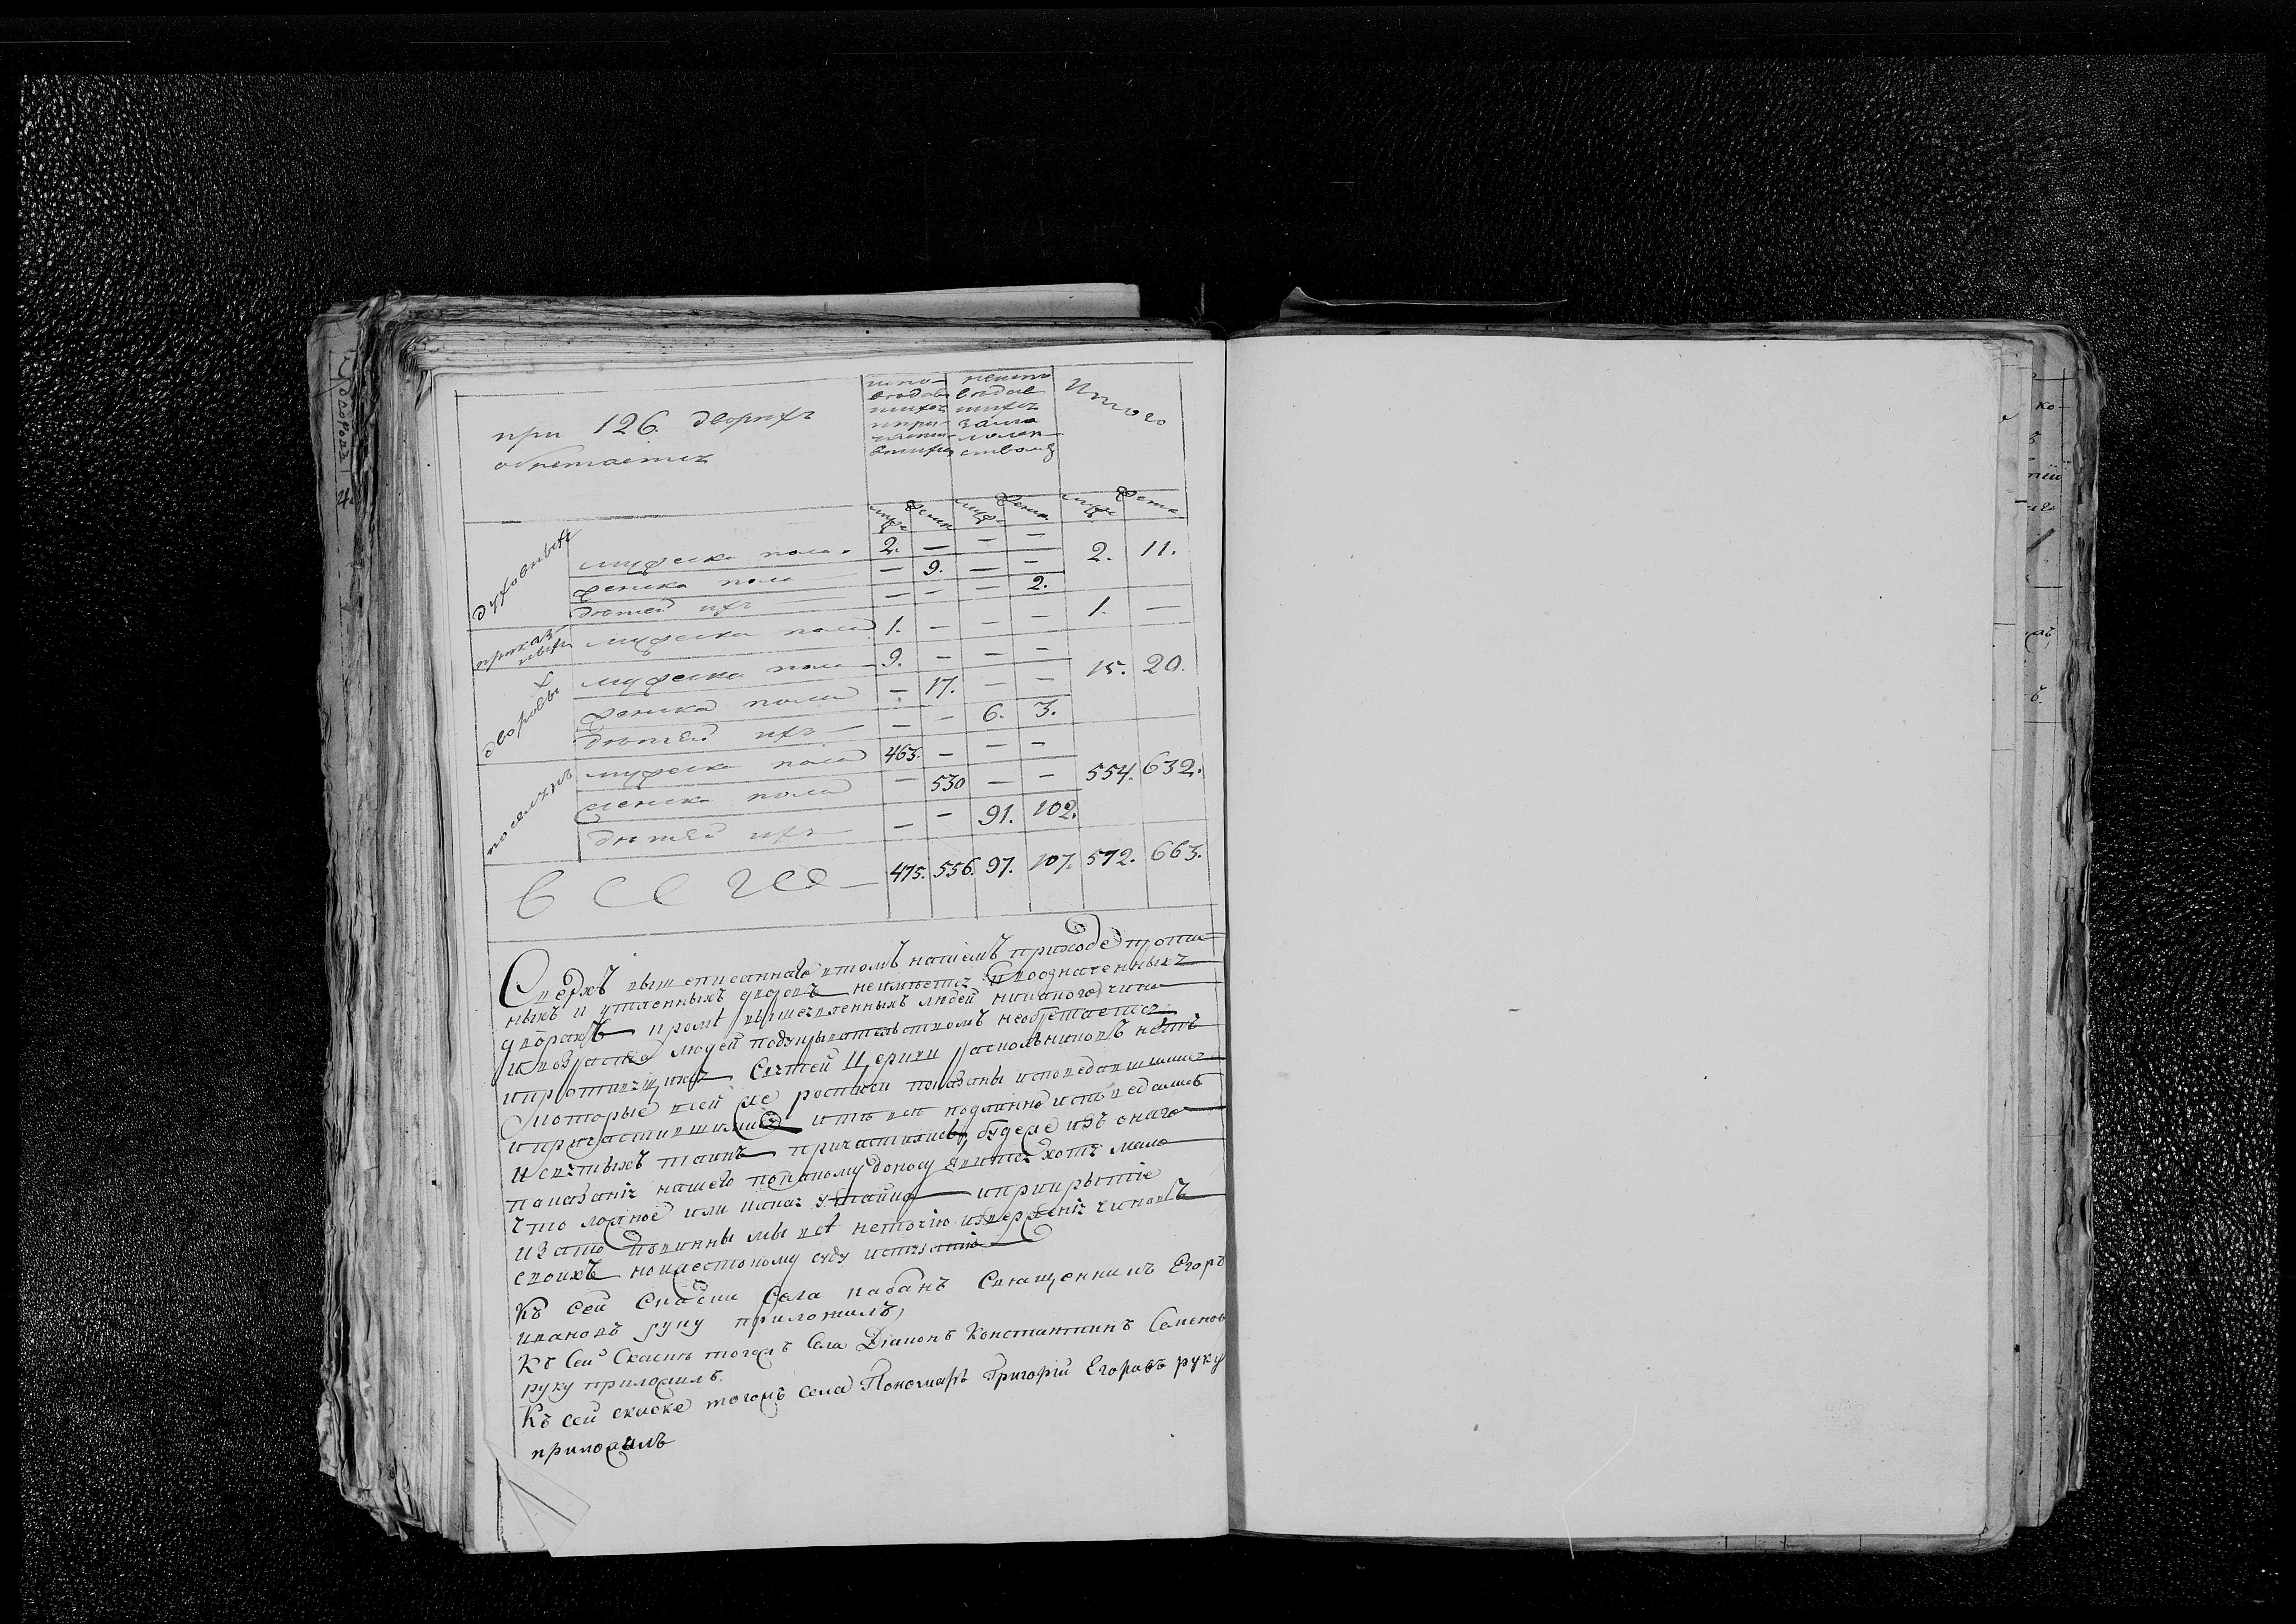 при 126. дворахъ
обретается
испо-
ведав
шихся
и при-
частив
шихся
неиспо
ведав
шихся
замa
лолет
ствомъ
Итого
муж женс муж женс муж женс
духовныхъ
мужеска пола 2. — — — 2. 11.
женска пола — 9. — —
детей ихъ — — — 2.
приказ-
ныхъ
мужеска пола 1. — — — 1. —
дворовы
х
мужеска пола 9. — — — 15. 20.
женска пола — 17. — —
детей ихъ — — 6. 3.
поселянъ
мужеска пола 463. — — — 554. 632.
женска пола — 530 — —
детей ихъ — — 91. 102.
всего 475. 556. 97. 107. 572. 663.
Сверхъ вышеписаннаго втомъ нашемъ приходе пропи-
ныхъ и утаенныхъ дворовъ неимеется Ивоозначенныхъ
дворахъ кроме вышеявленныхъ людей никакого чина
ивозраста людей подукрывательствомъ необретается
ипротивящихся Святей Церкви раскольниковъ нетъ
Которые всей же росписи показаны исповедавшимися
ипричастившимися итe все подлинно исповедались
Исвятыхъ таинъ причастились, будеже изъ онаго
показания нашего покакому доносу явится хотя мало
что ложное или какая утайка иприкрытие
изато повинны мы все неточию извержения чиновъ
своихъ ноижестокому суду истязанию
Къ сей Скаски Села кабанъ Священникъ Егоръ
ивановъ руку приложилъ,
Къ Сей Скаски тогожъ Села Диаконъ Константинъ Семенов
руку приложилъ.
Къ сей скаске тогожъ села Пономарь Григорій Егоровъ руку
приложилъ